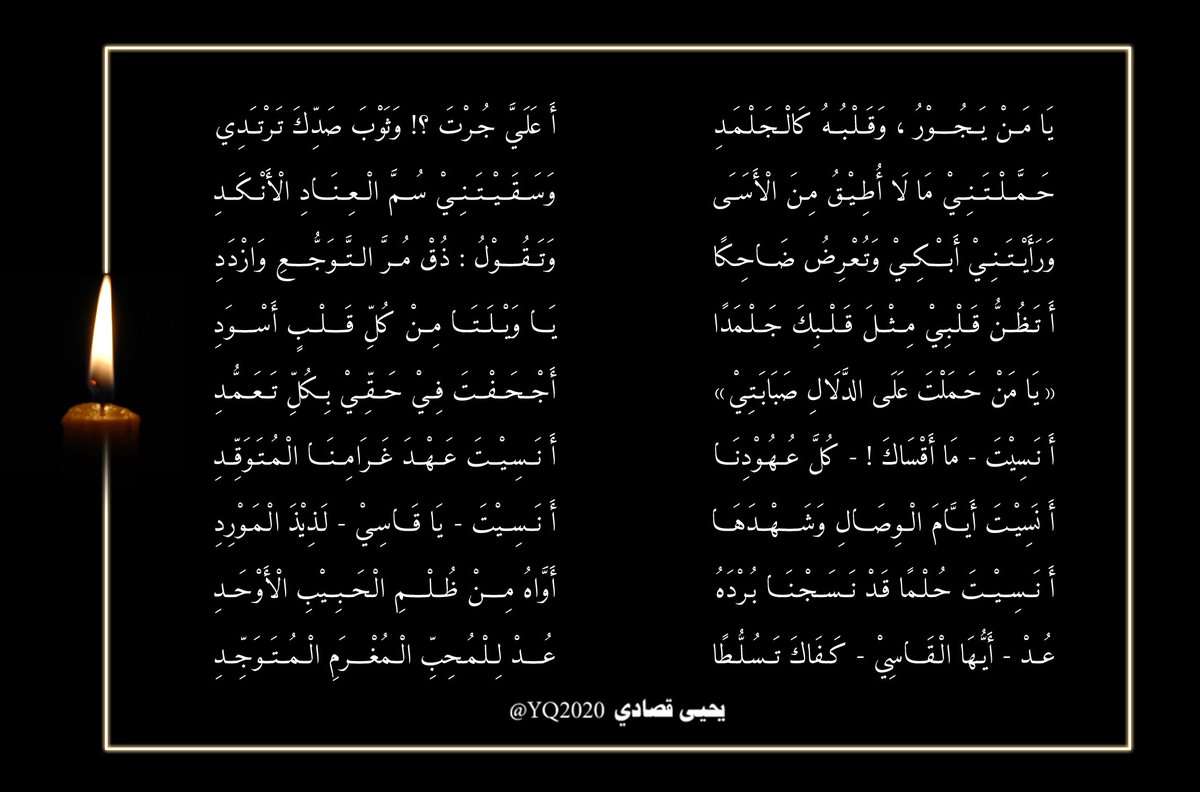 يَا مَنْ يَجُوْرُ ، وَقَلْبُهُ كَالْجَلْمَدِ أَ عَلَيَّ جُرْتَ ؟! وَثَوْبَ صَدِّكَ تَرْتَدِي
حَمَّلْتَنِيْ مَا لَا أُطِيْقُ مِنَ الْأَسَى وَسَقَيْتَنِيْ سُمَّ الْعِنَادِ الْأَنْكَدِ
وَرَأَيْتَنِيْ أَبْكِيْ وَتُعْرِضُ ضَاحِكًا وَتَقُوْلُ : ذُقْ مُرَّ التَّوَجُّعِ وَازْدَدِ
أَ تَظُنُّ قَلْبِيْ مِثْلَ قَلْبِكَ جَلْمَدًا يَا وَيْلَتَا مِنْ كُلِّ قَلْبٍ أَسْوَدِ
«يَا مَنْ حَمَلْتَ عَلَى الدَّلَالِ صَبَابَتِيْ» أَجْحَفْتَ فِيْ حَقِّيْ بِكُلِّ تَعَمُّدِ
أَ نَسِيْتَ - مَا أَقْسَاكَ ! - كُلَّ عُهُوْدِنَا أَ نَسِيْتَ عَهْدَ غَرَامِنَا الْمُتَوَقِّدِ
أَ نَسِيْتَ أَيَّامَ الْوِصَالِ وَشَهْدَهَا أَ نَسِيْتَ - يَا قَاسِيْ - لَذِيْذَ الْمَوْرِدِ
أَ نَسِيْتَ حُلْمًا قَدْ نَسَجْنَا بُرْدَهُ أَوَّاهُ مِنْ ظُلْمِ الْحَبِيْبِ الْأَوْحَدِ
عُدْ - أَيُّهَا الْقَاسِيْ - كَفَاكَ تَسُلُّطًا عُدْ لِلْمُحِبِّ الْمُغْرَمِ الْمُتَوَجِّدِ
يحيى قصادي @YQ2020